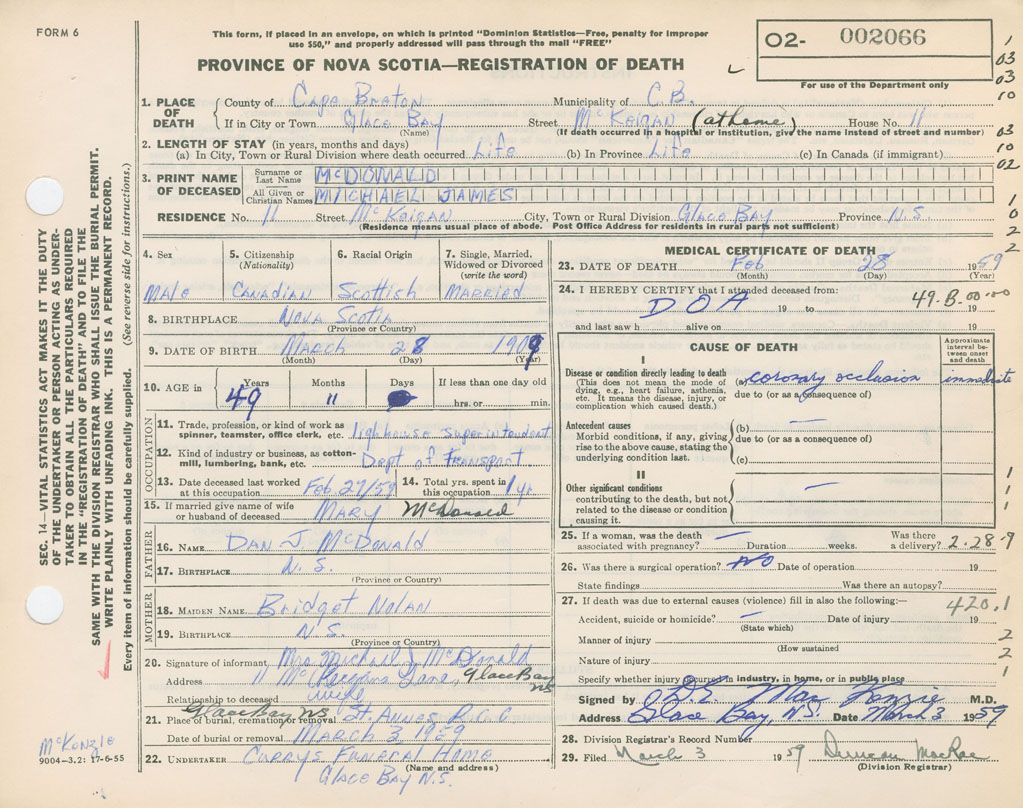 FORM 6
This form, if placed in an envelope, on which is printed "Dominion Statistics—Free, penalty for improper
use $50," and properly addressed will pass through the mail "FREE"
PROVINCE OF NOVA SCOTIA—REGISTRATION OF DEATH
02- 002066
For use of the Department only
1
03
03
10
03
10
02
1
0
2
2
SEC. 14—VITAL STATISTICS ACT MAKES IT THE DUTY
OF THE UNDERTAKER OR PERSON ACTING AS UNDER-
TAKER TO OBTAIN ALL THE PARTICULARS REQUIRED
IN THE "REGISTRATION OF DEATH" AND TO FILE THE
SAME WITH THE DIVISION REGISTRAR WHO SHALL ISSUE THE BURIAL PERMIT.
WRITE PLAINLY WITH UNFADING INK. THIS IS A PERMANENT RECORD.
Every item of information should be carefully supplied. (See reverse side for instructions.)
1. PLACE OF DEATH County of Cape Breton Municipality of C.B.
If in City or Town Glace Bay Street McKeigan (at home) House No. 11
(Name) (If death occurred in a hospital or institution, give the name instead of street and number)
2. LENGTH OF STAY (in years, months and days)
(a) In City, Town or Rural Division where death occurred Life (b) In Province Life (c) In Canada (if immigrant)
3. PRINT NAME OF DECEASED Surname or Last Name McDONALD
All Given or Christian Names MICHAEL JAMES
RESIDENCE No. 11 Street McKeigan City, Town or Rural Division Glace Bay Province N.S.
(Residence means usual place of abode. Post Office Address for residents in rural parts not sufficient)
4. Sex 5. Citizenship (Nationality) 6. Racial Origin 7. Single, Married, Widowed or Divorced (write the word)
Male Canadian Scottish Married
8. BIRTHPLACE Nova Scotia
(Province or Country)
9. DATE OF BIRTH March 28 1909
(Month) (Day) (Year)
10. AGE in Years Months Days If less than one day old
49 11 hrs. or min.
OCCUPATION
11. Trade, profession, or kind of work as lighhouse superintendent
spinner, teamster, office clerk, etc.
12. Kind of industry or business, as cotton- Dept of Transport
mill, lumbering, bank, etc.
13. Date deceased last worked at this occupation Feb 27/59 14. Total yrs. spent in this occupation 1 yr
15. If married give name of wife or husband of deceased Mary McDonald
FATHER
16. NAME Dan J McDonald
17. BIRTHPLACE N.S.
(Province or Country)
MOTHER
18. MAIDEN NAME Bridget Nolan
19. BIRTHPLACE N.S.
(Province or Country)
20. Signature of informant Mrs Michael J McDonald
Address 11 Lane, Glace Bay NS
Relationship to deceased wife
Glace Bay NS
21. Place of burial, cremation or removal St. Annes R.C.C
Date of burial or removal March 3 1959
22. UNDERTAKER Currys Funeral Home
(Name and address)
Glace Bay N.S.
McKenzie
9004-3.2: 17-6-55
MEDICAL CERTIFICATE OF DEATH
23. DATE OF DEATH Feb 28 1959
(Month) (Day) (Year)
24. I HEREBY CERTIFY that I attended deceased from: 49-B-00-00
DOA 19 to 19
and last saw h alive on 19
CAUSE OF DEATH
Approximate interval between onset and death
I
Disease or condition directly leading to death
(This does not mean the mode of dying, e.g., heart failure, asthenia, etc. It means the disease, injury, or complication which caused death.)
(a) coronary occlusion immediate
due to (or as a consequence of)
Antecedent causes
Morbid conditions, if any, giving rise to the above cause, stating the underlying condition last.
(b) —
due to (or as a consequence of)
(c)
II
Other significant conditions —
contributing to the death, but not related to the disease or condition causing it.
1
1
1
25. If a woman, was the death associated with pregnancy? — Duration weeks. Was there a delivery? 2-28-9
26. Was there a surgical operation? No Date of operation 19
State findings Was there an autopsy?
27. If death was due to external causes (violence) fill in also the following:— 420.1
Accident, suicide or homicide? — Date of injury 19
(State which)
Manner of injury 2
(How sustained
Nature of injury 2
Specify whether injury occurred in industry, in home, or in public place 1
Signed by M.D.
Address Glace Bay, N.S. Date March 3 1959
28. Division Registrar's Record Number
29. Filed March 3 1959 Duncan MacRae
(Division Registrar)